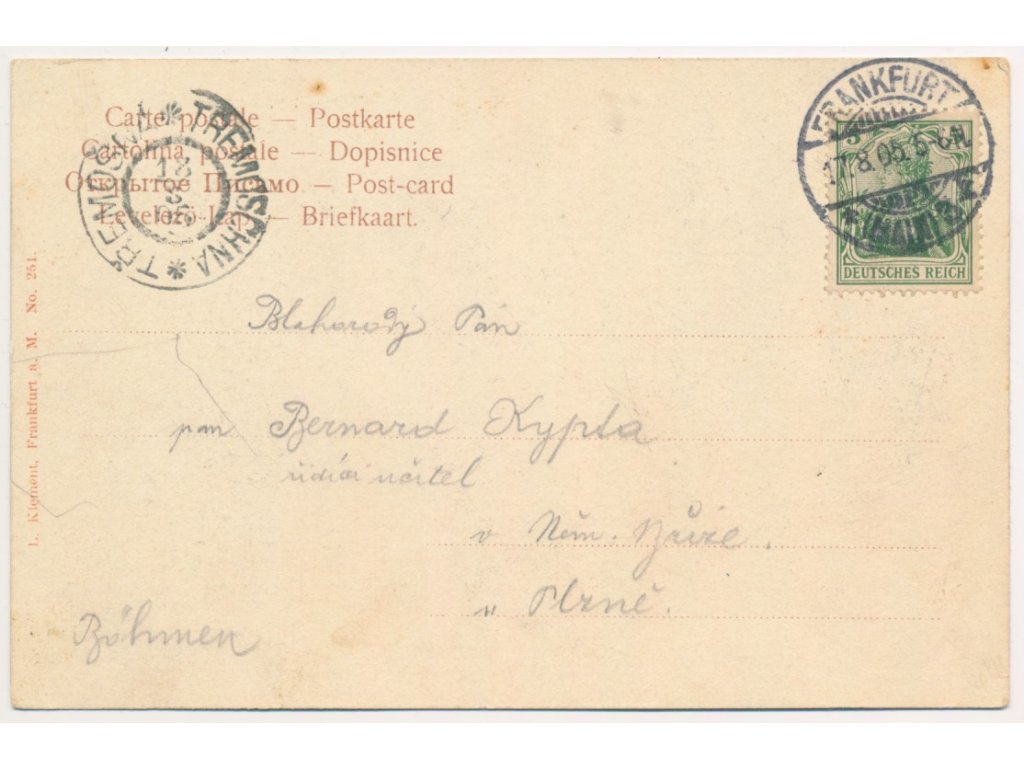 Carte postale — Postkarte
Cartolina postale — Dopisnice
Открытое Письмо — Post-card
Levelező-Lap — Briefkaart.
TŘEMOŠNÁ * TREMOSCHNA *
FRANKFURT
17.8.05. 5-6N.
* (MAIN)
DEUTSCHES REICH
L. Klement, Frankfurt a. M. No. 251.
Blahorodý Pán
pan Bernard Kypta
řídící učitel
v Něm. Bříze.
u Plzně.
Böhmen